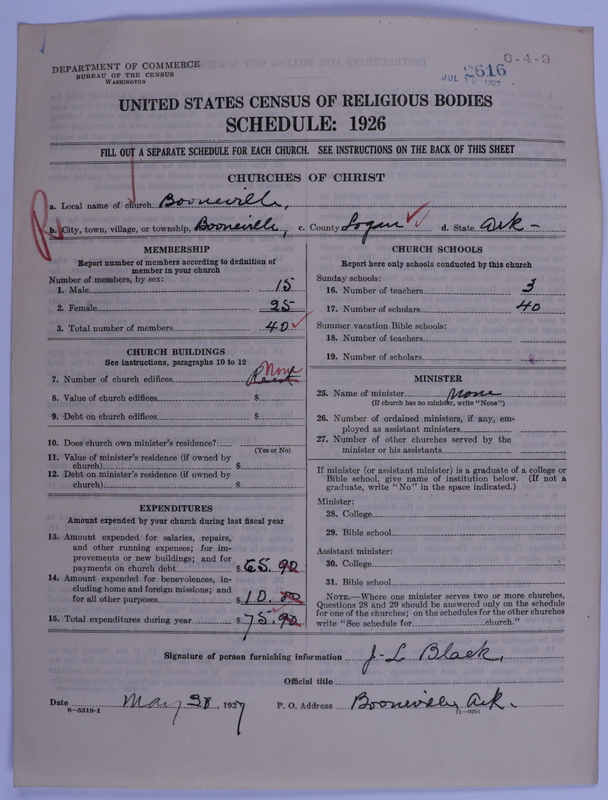 0-4-9
DEPARTMENT OF COMMERCE
BUREAU OF THE CENSUS
WASHINGTON
2616
JUL 1927
UNITED STATES CENSUS OF RELIGIOUS BODIES
SCHEDULE: 1926
FILL OUT A SEPARATE SCHEDULE FOR EACH CHURCH. SEE INSTRUCTIONS ON THE BACK OF THIS SHEET
CHURCHES OF CHRIST
a. Local name of church Booneville,
b. City, town, village, or township, Booneville, c. County Logan d. State Ark-
MEMBERSHIP
Report number of members according to definition of
member in your church
Number of members, by sex:
1. Male 15
2. Female 25
3. Total number of members 40
CHURCH BUILDINGS
See instructions, paragraphs 10 to 12
None
7. Number of church edifices Rent
8. Value of church edifices $
9. Debt on church edifices $
10. Does church own minister's residence?
(Yes or No)
11. Value of minister's residence (if owned by
church) $
12. Debt on minister's residence (if owned by
church) $
EXPENDITURES
Amount expended by your church during last fiscal year
13. Amount expended for salaries, repairs,
and other running expenses; for im-
provements or new buildings; and for
payments on church debt $65.90
14. Amount expended for benevolences, in-
cluding home and foreign missions; and
for all other purposes $10.00
15. Total expenditures during year $75.90
CHURCH SCHOOLS
Report here only schools conducted by this church
Sunday schools:
16. Number of teachers 3
17. Number of scholars 40
Summer vacation Bible schools:
18. Number of teachers
19. Number of scholars
MINISTER
25. Name of minister none
(If church has no minister, write "None")
26. Number of ordained ministers, if any, em-
ployed as assistant ministers
27. Number of other churches served by the
minister or his assistants
If minister (or assistant minister) is a graduate of a college or
Bible school, give name of institution below. (If not a
graduate, write "No" in the space indicated.)
Minister:
28. College
29. Bible school
Assistant minister:
30. College
31. Bible school
NOTE.—Where one minister serves two or more churches,
Questions 28 and 29 should be answered only on the schedule
for one of the churches; on the schedules for the other churches
write "See schedule for church."
Signature of person furnishing information J-L Black,
Official title
Date May 28, 1927 P. O. Address Booneville, Ark.
8-5518-1